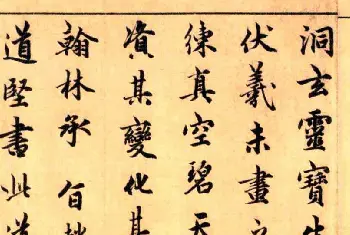 洞玄靈寶
伏羲未畫
練真空碧天
資其變化其
翰林承旨
道堅書此道